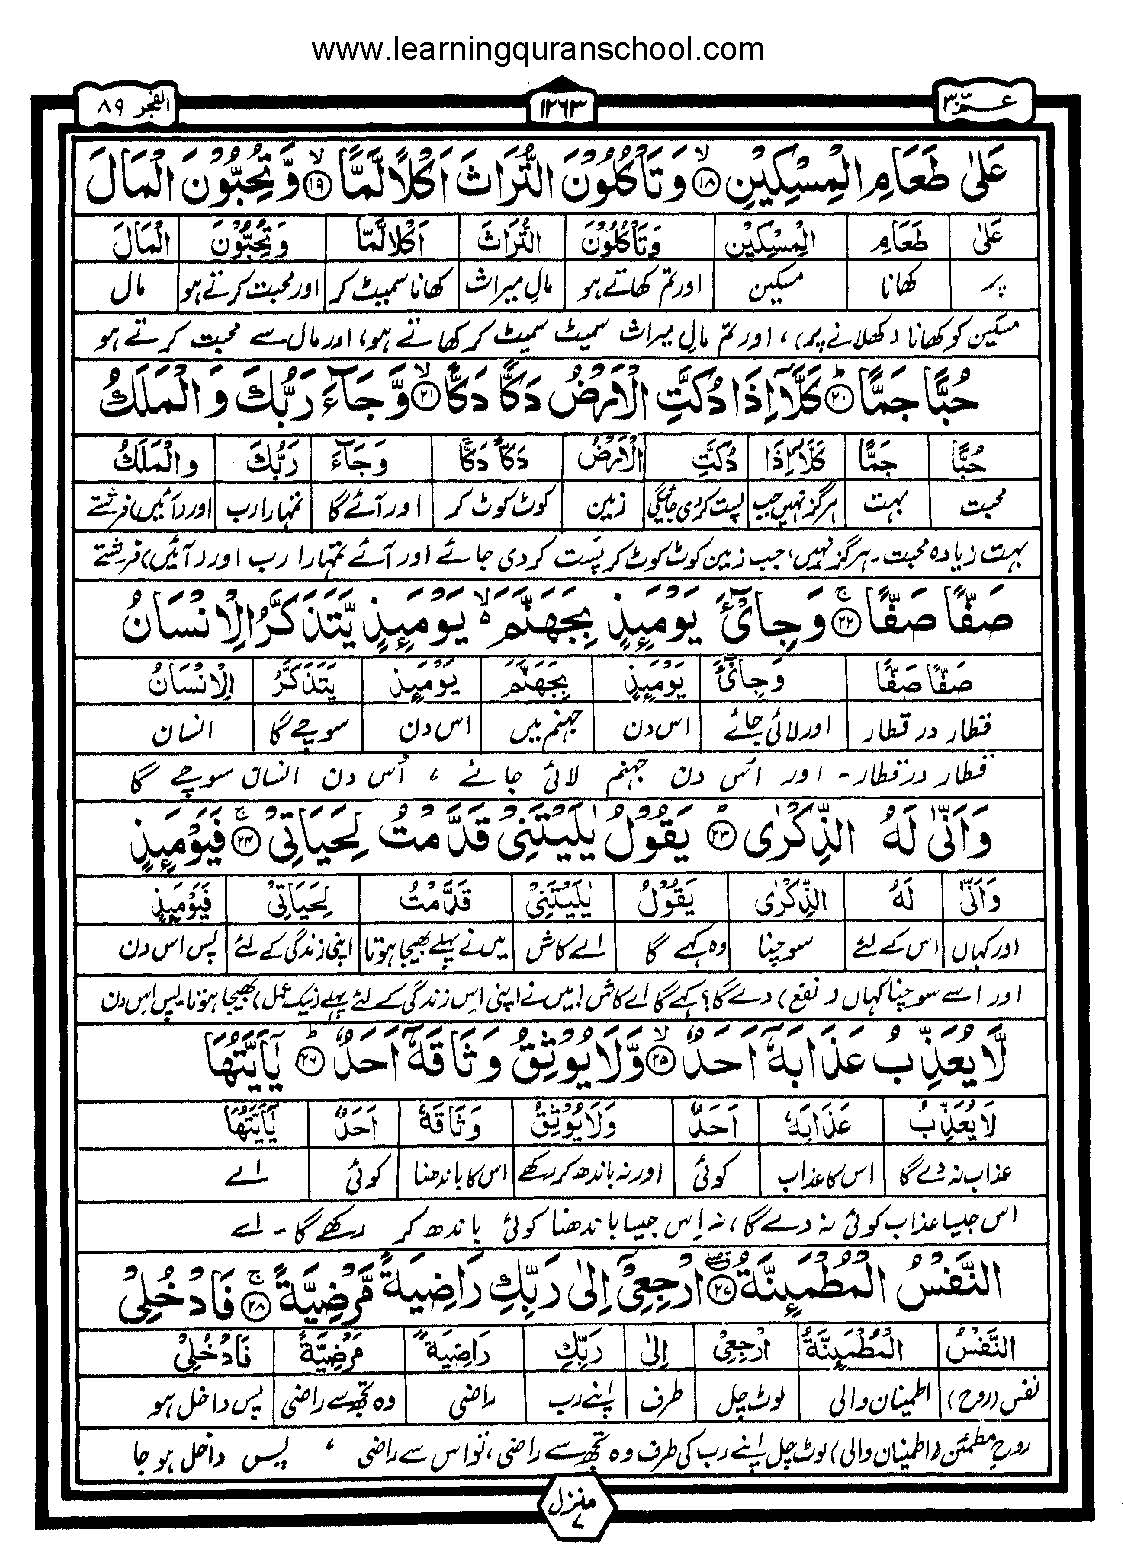 www.learningquranschool.com
عـمّ ٣٠
١٢٦٣
الفجر ٨٩
عَلٰى طَعَامِ الْمِسْكِيْنِ ۙ﴿۱۸﴾ وَتَاْكُلُوْنَ التُّرَاثَ اَكْلًا لَّمًّا ۙ﴿۱۹﴾ وَّتُحِبُّوْنَ الْمَالَ
عَلٰى طَعَامِ الْمِسْكِيْنِ وَتَاْكُلُوْنَ التُّرَاثَ اَكْلًا لَّمًّا وَتُحِبُّوْنَ الْمَالَ
پر کھانا مسکین اور تم کھاتے ہو مالِ میراث کھانا سمیٹ کر اور محبت کرتے ہو مال
مسکین کو کھانا (کھلانے پر)، اور تم مالِ میراث سمیٹ سمیٹ کر کھاتے ہو، اور مال سے محبت کرتے ہو
حُبًّا جَمًّا ؕ﴿۲۰﴾ كَلَّاۤ اِذَا دُكَّتِ الْاَرْضُ دَكًّا دَكًّا ۙ﴿۲۱﴾ وَّجَآءَ رَبُّكَ وَالْمَلَكُ
حُبًّا جَمًّا كَلَّاۤ اِذَا دُكَّتِ الْاَرْضُ دَكًّا دَكًّا وَجَآءَ رَبُّكَ وَالْمَلَكُ
محبت بہت ہرگز نہیں جب پست کردی جائیگی زمین کوٹ کوٹ کر اور آئے گا تمہارا رب اور (آئیں) فرشتے
بہت زیادہ محبت۔ ہرگز نہیں، جب زمین کوٹ کوٹ کر پست کر دی جائے اور آئے تمہارا رب اور (آئیں) فرشتے
صَفًّا صَفًّا ۚ﴿۲۲﴾ وَجِایْٓءَ يَوْمَئِذٍۭ بِجَهَنَّمَ ۙ يَوْمَئِذٍ يَّتَذَكَّرُ الْاِنْسَانُ
صَفًّا صَفًّا وَجِایْٓءَ يَوْمَئِذٍ بِجَهَنَّمَ يَوْمَئِذٍ يَّتَذَكَّرُ الْاِنْسَانُ
قطار در قطار اور لائی جائے اس دن جہنم میں اس دن سوچے گا انسان
قطار در قطار۔ اور اس دن جہنم لائی جائے ، اُس دن انسان سوچے گا
وَاَنّٰى لَهُ الذِّكْرٰى ؕ﴿۲۳﴾ يَقُوْلُ يٰلَيْتَنِيْ قَدَّمْتُ لِحَيَاتِيْ ۚ﴿۲۴﴾ فَيَوْمَئِذٍ
وَاَنّٰى لَهُ الذِّكْرٰى يَقُوْلُ يٰلَيْتَنِيْ قَدَّمْتُ لِحَيَاتِيْ فَيَوْمَئِذٍ
اور کہاں اس کے لئے سوچنا وہ کہے گا اے کاش میں نے پہلے بھیجا ہوتا اپنی زندگی کے لئے پس اس دن
اور اسے سوچنا کہاں (نفع) دے گا؟ کہے گا اے کاش! میں نے اپنی اس زندگی کے لئے پہلے (نیک عمل) بھیجا ہوتا، پس اس دن
لَّا يُعَذِّبُ عَذَابَهٗۤ اَحَدٌ ۙ﴿۲۵﴾ وَّلَا يُوْثِقُ وَثَاقَهٗۤ اَحَدٌ ؕ﴿۲۶﴾ يٰۤاَيَّتُهَا
لَا يُعَذِّبُ عَذَابَهٗ اَحَدٌ وَلَا يُوْثِقُ وَثَاقَهٗ اَحَدٌ يٰۤاَيَّتُهَا
عذاب نہ دے گا اس کا عذاب کوئی اور نہ باندھ کر رکھے اس کا باندھنا کوئی اے
اس جیسا عذاب کوئی نہ دے گا، نہ اس جیسا باندھنا کوئی باندھ کر رکھے گا۔ اے
النَّفْسُ الْمُطْمَئِنَّةُ ﴿۲۷﴾ ارْجِعِيْۤ اِلٰى رَبِّكِ رَاضِيَةً مَّرْضِيَّةً ۚ﴿۲۸﴾ فَادْخُلِيْ
النَّفْسُ الْمُطْمَئِنَّةُ ارْجِعِيْ اِلٰى رَبِّكِ رَاضِيَةً مَّرْضِيَّةً فَادْخُلِيْ
نفس (روح) اطمینان والی لوٹ چل طرف اپنے رب راضی وہ تجھ سے راضی پس داخل ہو
روحِ مطمئن (اطمینان والی) لوٹ چل اپنے رب کی طرف وہ تجھ سے راضی، تو اس سے راضی ، پس داخل ہو جا
منزل ٧